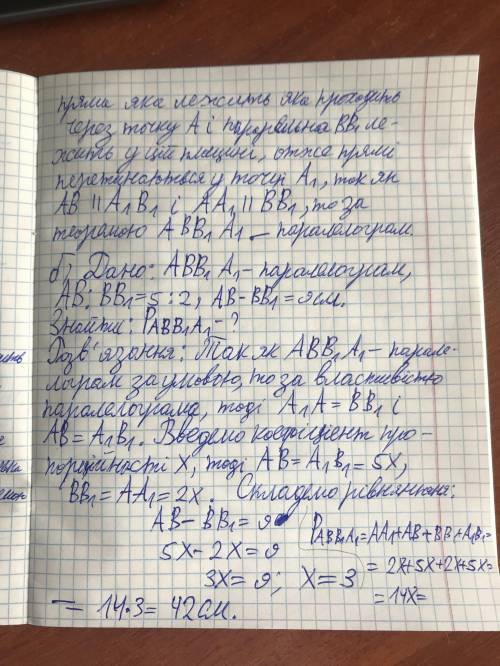 пряма яка лежить яка проходить
через точку A і паралельна BB₁ ле-
жить у цій площині, отже прямі
перетинаються у точці A₁, так як
AB || A₁B₁ і AA₁ || BB₁, то за
теоремою ABB₁A₁ – паралелограм.
б) Дано: ABB₁A₁ – паралелограм,
AB : BB₁ = 5 : 2, AB - BB₁ = 9см.
Знайти: PABB₁A₁ - ?
Розв'язання: Так як ABB₁A₁ – парале-
лограм за умовою, то за властивістю
паралелограма, тоді A₁A = BB₁ і
AB = A₁B₁. Введемо коефіцієнт про-
порційності X, тоді AB = A₁B₁ = 5X,
BB₁ = AA₁ = 2X. Складемо рівняння:
AB - BB₁ = 9
5X - 2X = 9
3X = 9; X = 3
PABB₁A₁ = AA₁ + AB + BB₁ + A₁B₁ =
= 2X + 5X + 2X + 5X =
= 14X =
= 14·3 = 42см.